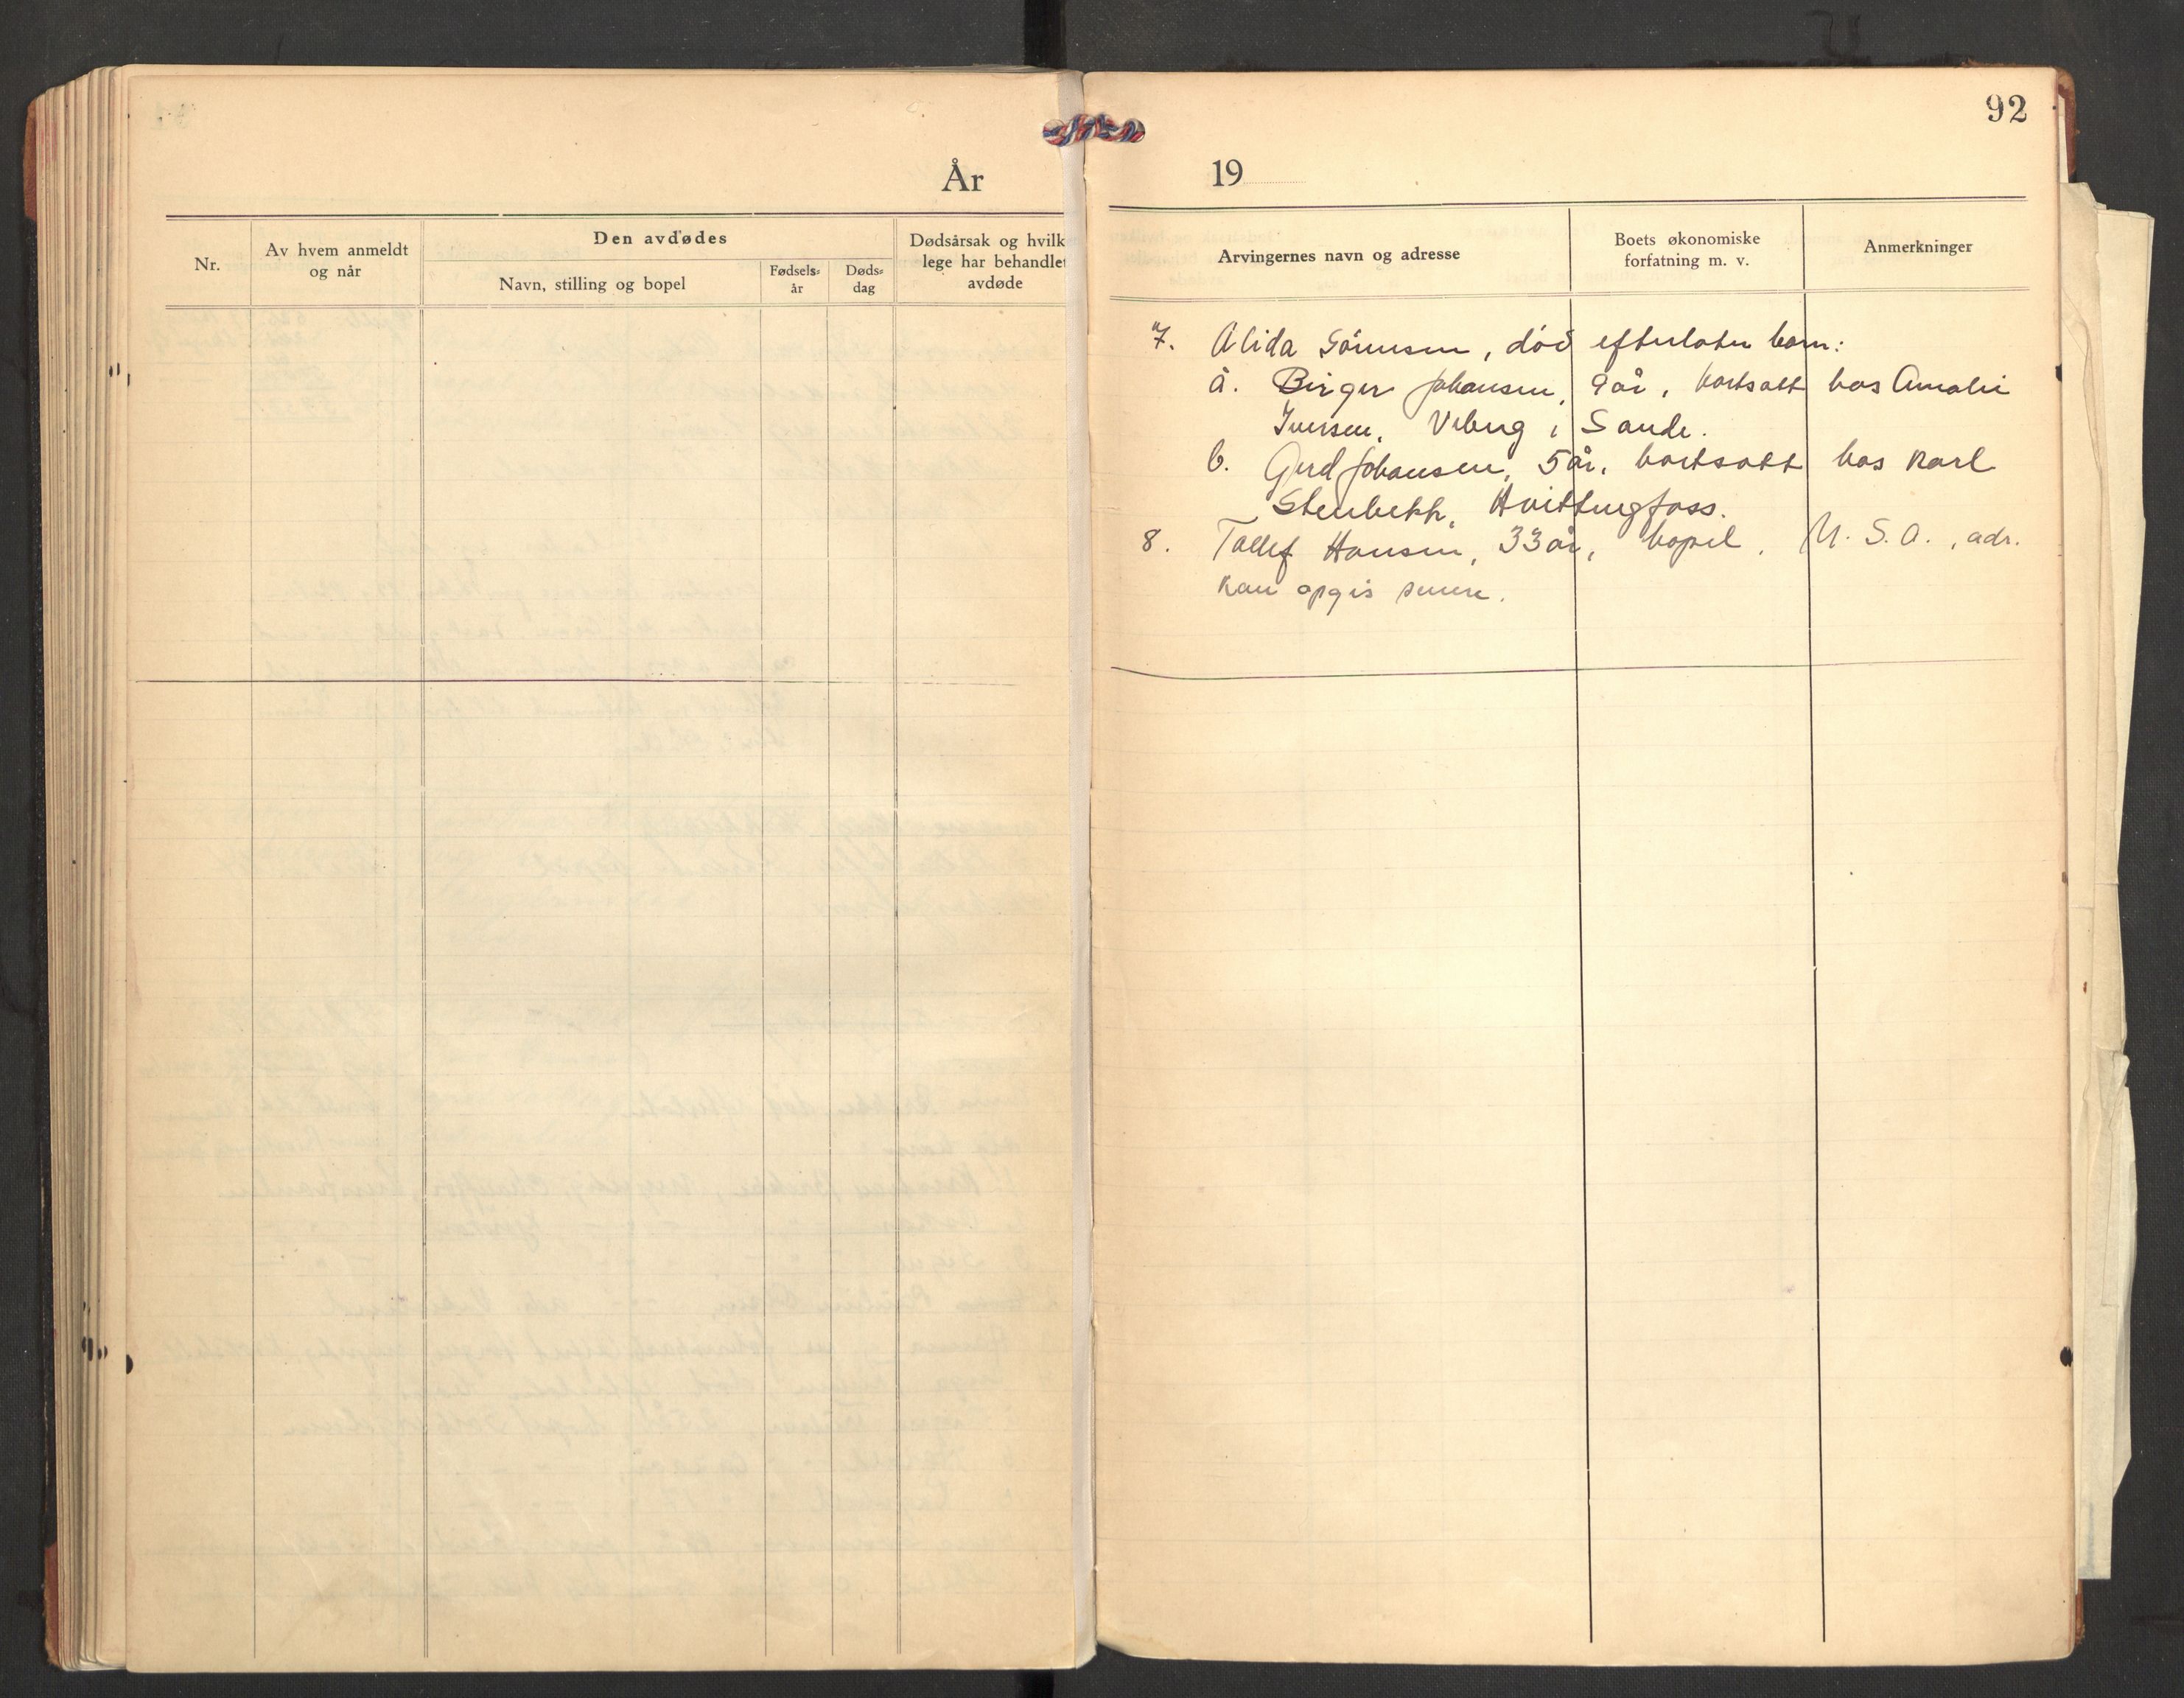 92
År 19
Nr.
Av hvem anmeldt
og når
Den avdødes
Navn, stilling og bopel
Fødsels-
år
Døds-
dag
Dødsårsak og hvilk
lege har behandlet
avdøde
Arvingernes navn og adresse
Boets økonomiske
forfatning m. v.
Anmerkninger
7. Alida Sörensen, död efterlater barn:
a. Birger Johansen, 9 år, bortsatt hos Amalie
Iversen, i Sande.
b. Gerd Johansen, 5 år, bortsatt hos Karl
Stenbekk, Hvittingfoss.
8. Tollef Hansen, 33 år, bopel, U.S.A., adr.
kan opgis senere.